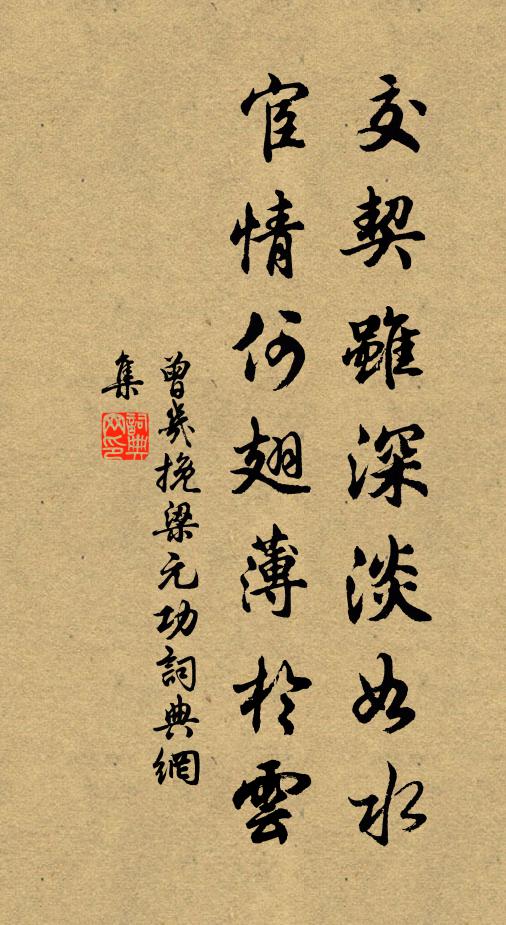 交契雖深淡如水
宦情何翅薄於雲
曾幾挽梁元功詞典網
集
詞典
网印